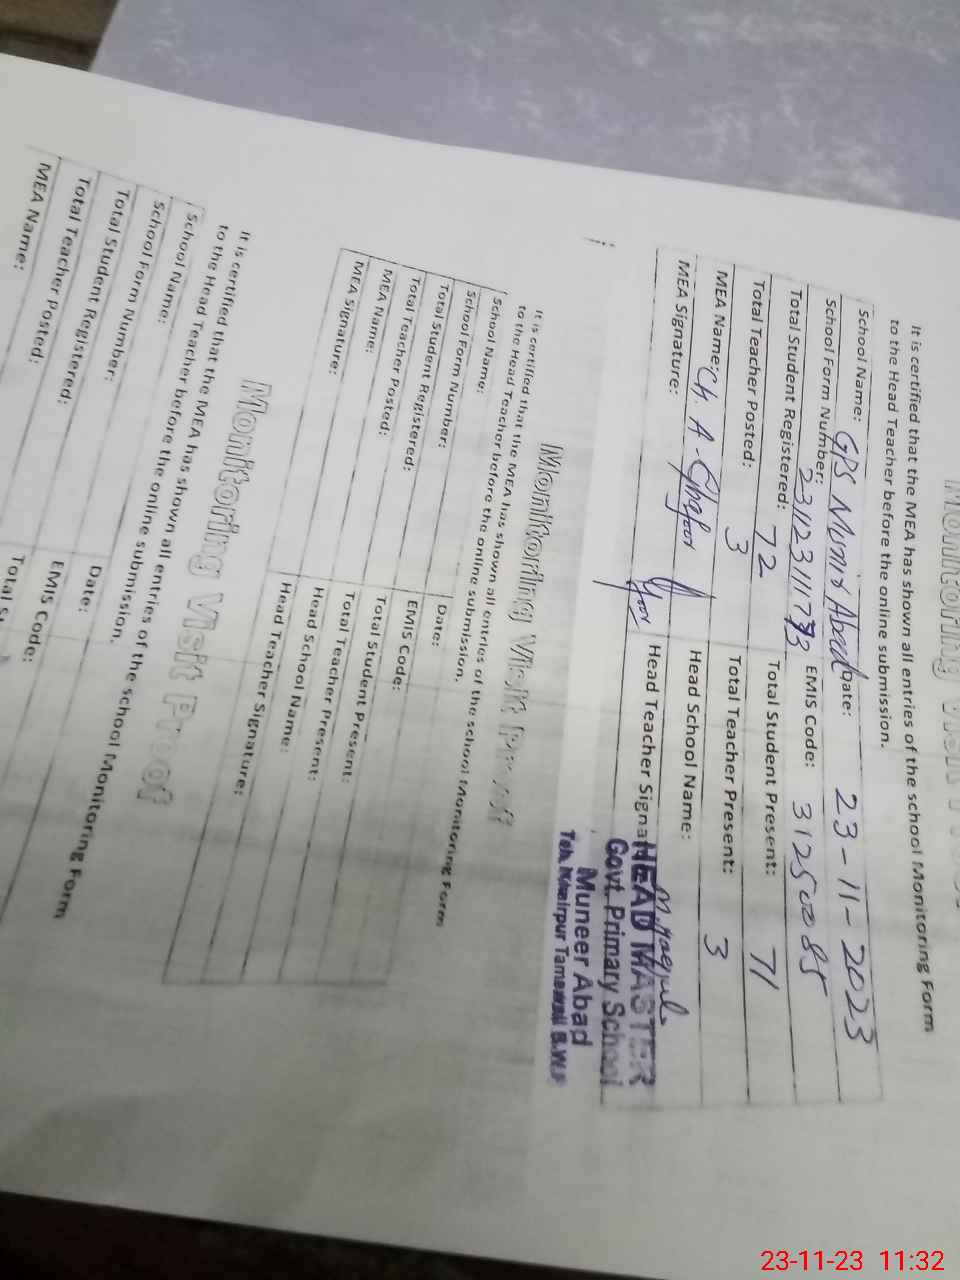 It is certified that the MEA has shown all entries of the school Monitoring Form
to the Head Teacher before the online submission.
School Name: GPS Munir Abad Date: 23-11-2023
School Form Number: EMIS Code: 31250085
Total Student Registered: 72 Total Student Present: 71
Total Teacher Posted: 3 Total Teacher Present: 3
MEA Name: Ch. A. Ghafoor Head School Name:
MEA Signature: Head Teacher
HEAD MASTER
Govt. Primary School
Muneer Abad
Teh. Khairpur Tamewali B.W.P
Monitoring Visit Proof
It is certified that the MEA has shown all entries of the school Monitoring Form
to the Head Teacher before the online submission.
School Name: Date:
School Form Number: EMIS Code:
Total Student Registered: Total Student Present:
Total Teacher Posted: Total Teacher Present:
MEA Name: Head School Name:
MEA Signature: Head Teacher Signature:
Monitoring Visit Proof
It is certified that the MEA has shown all entries of the school Monitoring Form
to the Head Teacher before the online submission.
School Name: Date:
School Form Number: EMIS Code:
Total Student Registered: Total
Total Teacher Posted:
MEA Name:
23-11-23 11:32